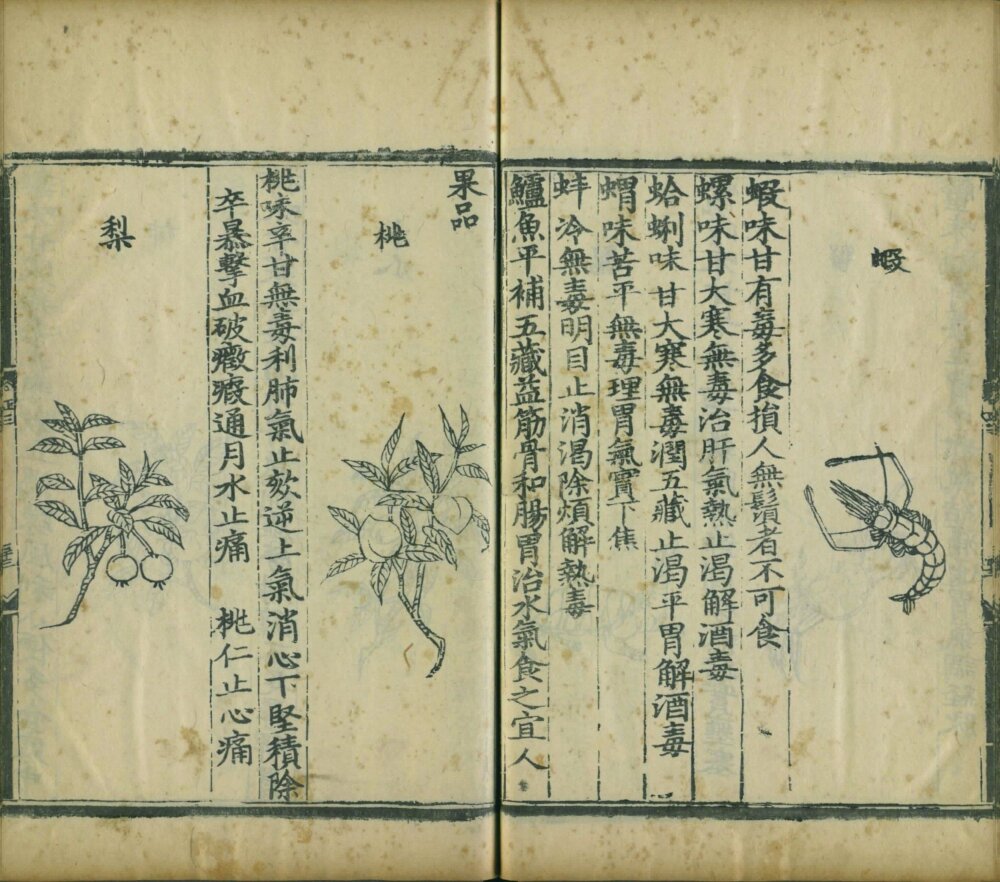 蝦
蝦味甘有毒多食損人無鬚者不可食
螺味甘大寒無毒治肝氣熱止渴解酒毒
蛤蜊味甘大寒無毒潤五藏止渴平胃解酒毒
蝟味苦平無毒理胃氣實下焦
蚌冷無毒明目止消渴除煩解熱毒
鱸魚平補五藏益筋骨和腸胃治水氣食之宜人
果品
桃
桃味辛甘無毒利肺氣止欬逆上氣消心下堅積除
卒暴擊血破癥瘕通月水止痛 桃仁止心痛
梨